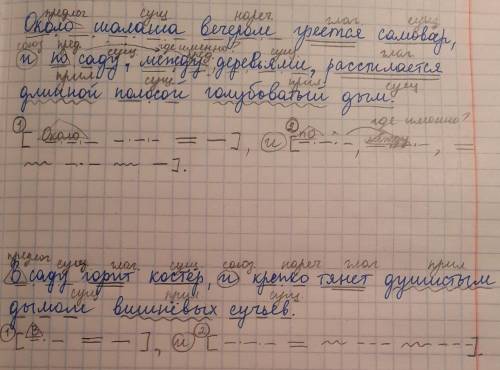 предлог сущ нареч глаг сущ
Около шалаша вечером греется самовар,
союз пред сущ где именно? сущ глаг
и по саду, между деревьями, расстилается
прил сущ прил сущ
длинной полосой голубоватый дым.
1 [Около 2 ], и [по где именно? между
].
предлог сущ глаг сущ союз нареч глаг прил
В саду горит костёр, и крепко тянет душистым
сущ прил сущ
дымом вишнёвых сучьев.
1 [В ], и 2 [ ].